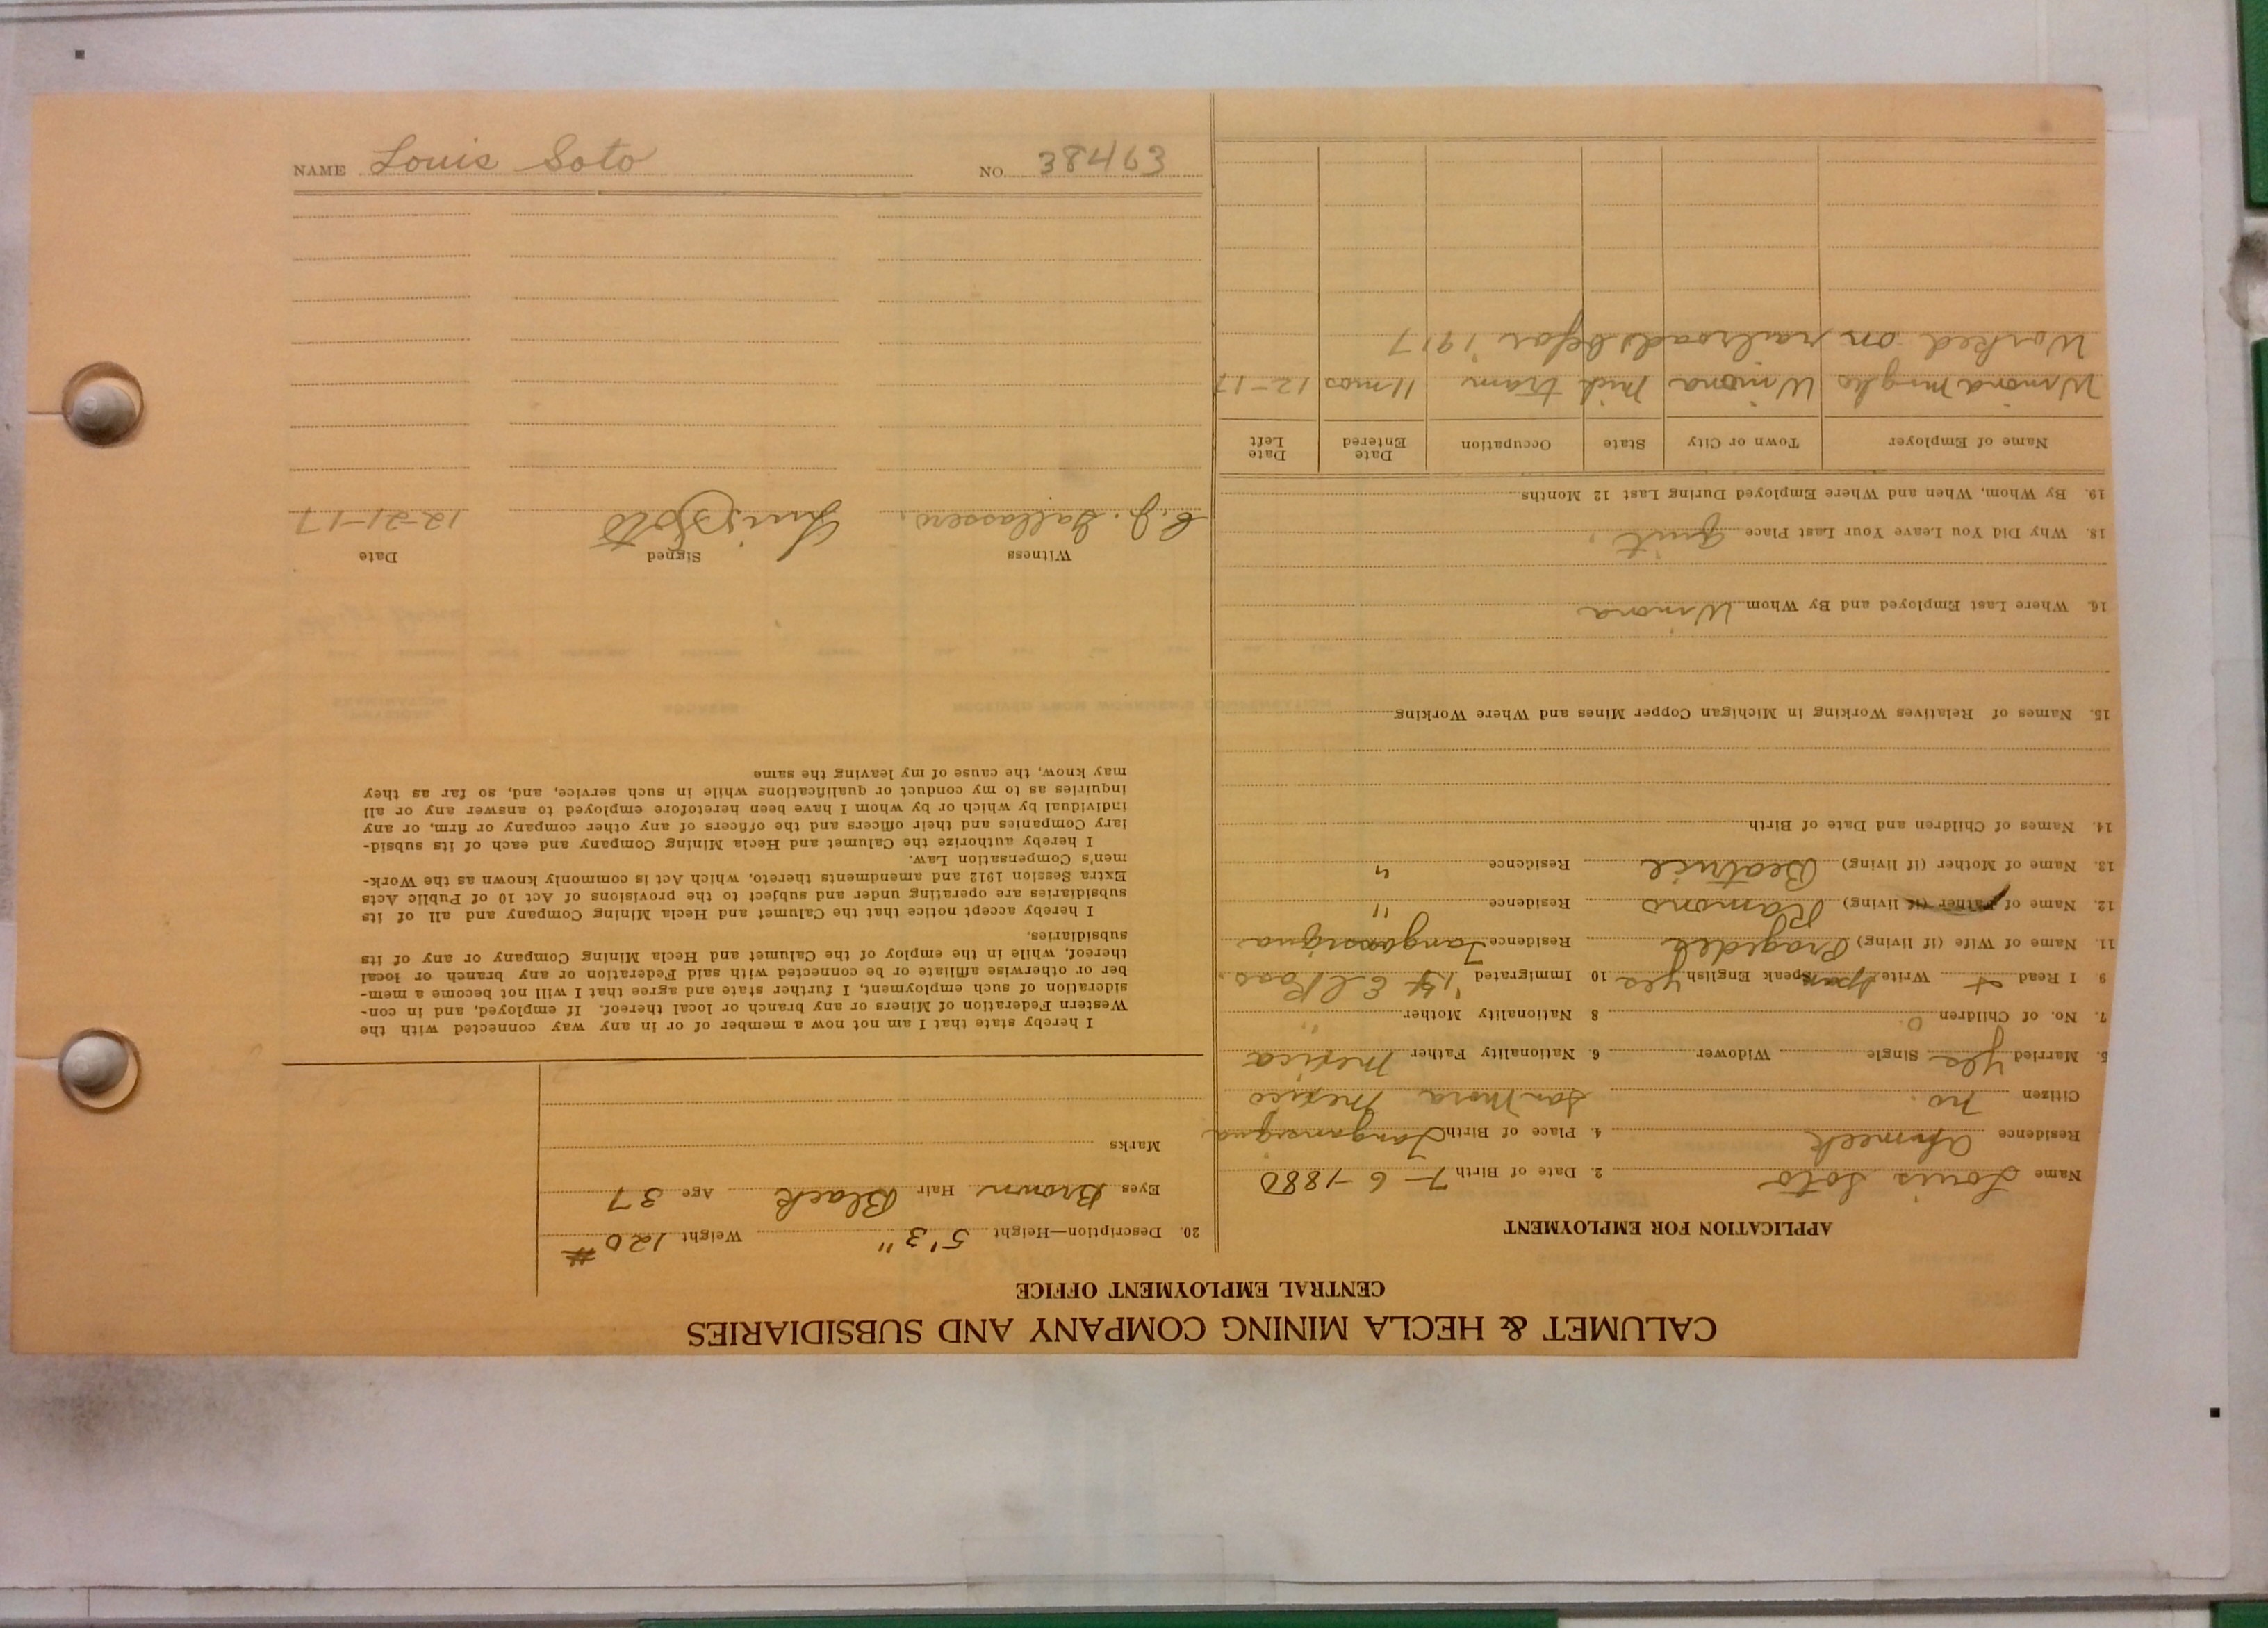 NAME Louis Soto NO. 38463
CALUMET & HECLA MINING COMPANY AND SUBSIDIARIES
CENTRAL EMPLOYMENT OFFICE
APPLICATION FOR EMPLOYMENT
Name Louis Soto 2. Date of Birth 7-6-1880
Residence Ahmeek 4. Place of Birth
Citizen no. Mexico
5. Married yes Single Widower 6. Nationality Father Mexica
7. No. of Children 0. 8 Nationality Mother "
9 I Read Write Speak English yes 10 Immigrated
11. Name of Wife (if living) Residence
12. Name of Father (if living) Ramono Residence "
13. Name of Mother (if living) Beatrice Residence "
14. Names of Children and Date of Birth
15. Names of Relatives Working in Michigan Copper Mines and Where Working
16. Where Last Employed and By Whom Winona
18. Why Did You Leave Your Last Place quit.
19. By Whom, When and Where Employed During Last 12 Months
Name of Employer Town or City State Occupation Date Entered Date Left
Winona Winona Mich tram 11 mos 12-17
Worked on railroads befor 1917
20. Description—Height 5'3" Weight 120 #
Eyes Brown Hair Black Age 37
Marks
I hereby state that I am not now a member of or in any way connected with the
Western Federation of Miners or any branch or local thereof. If employed, and in con-
sideration of such employment, I further state and agree that I will not become a mem-
ber or otherwise affiliate or be connected with said Federation or any branch or local
thereof, while in the employ of the Calumet and Hecla Mining Company or any of its
subsidiaries.
I hereby accept notice that the Calumet and Hecla Mining Company and all of its
subsidiaries are operating under and subject to the provisions of Act 10 of Public Acts
Extra Session 1912 and amendments thereto, which Act is commonly known as the Work-
men's Compensation Law.
I hereby authorize the Calumet and Hecla Mining Company and each of its subsid-
iary Companies and their officers and the officers of any other company or firm, or any
individual by which or by whom I have been heretofore employed to answer any or all
inquiries as to my conduct or qualifications while in such service, and, so far as they
may know, the cause of my leaving the same
Witness Signed Date
Luis Soto 12-21-17